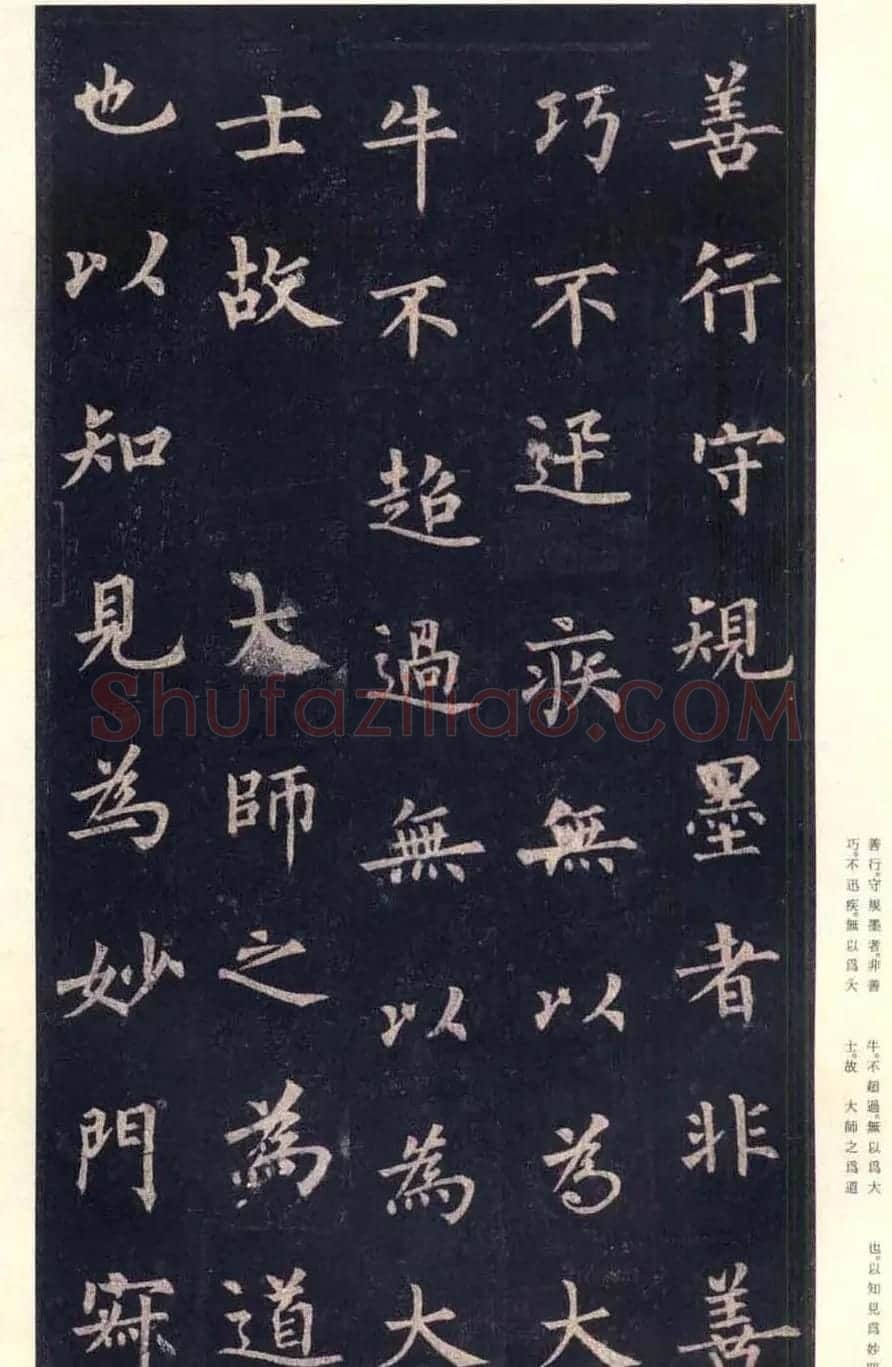 善行守規墨者非善
巧不迅疾無以為大
牛不超過無以為大
士故 大師之為道
也以知見為妙門寂
Shufaziliao.COM
善行。守規墨者。非善
巧。不迅疾。無以爲大
牛。不超過。無以爲大
士。故 大師之爲道
也。以知見爲妙